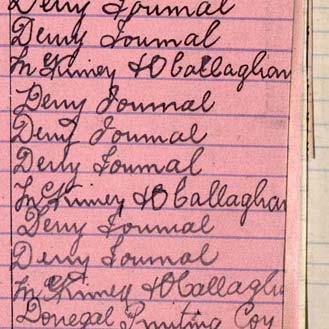 Derry Journal
Derry Journal
McKinney & O'Callaghan
Derry Journal
Derry Journal
Derry Journal
McKinney & O'Callaghan
Derry Journal
Derry Journal
McKinney & O'Callagh
Donegal Printing Coy